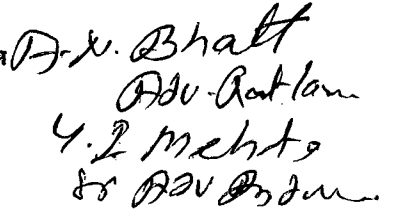 A. N. Bhatt
Adv. Ratlam
Y. I Mehta
Sr Adv